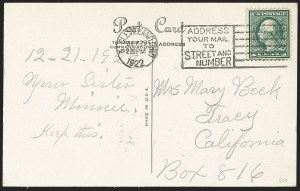 Post Card
ADDRESS
1922
ADDRESS
YOUR MAIL
TO
STREET AND
NUMBER
12-21-19
Your Sister
Minnie.
Keep this.
MADE IN U.S.A.
Mrs Mary Beck
Tracy
California
Box 816